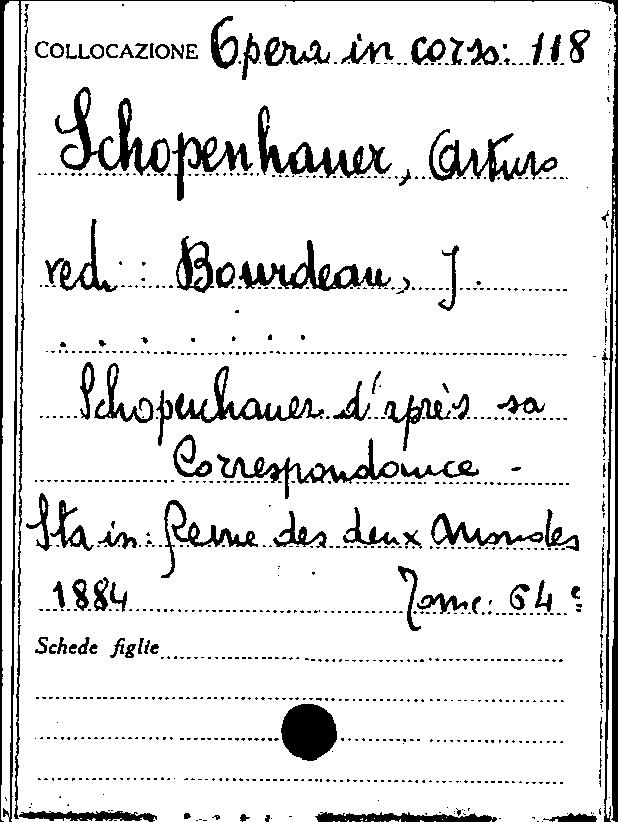 COLLOCAZIONE Opera in corso: 118
Schopenhauer, Arturo
ved. : Bourdeau, J.
. . . . . . .
Schopenhauer d'après sa
Correspondance -
Sta in: Revue des deux Mondes
1884 Tome: 64e
Schede figlie